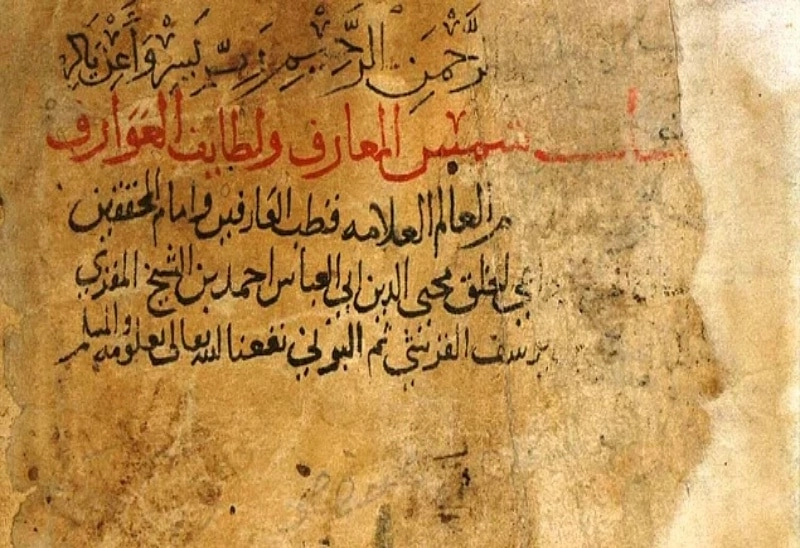 الرَّحْمَنِ الرَّحِيمِ رَبِّ يَسِّرْ وَأَعِنْ يَا كريم
كتاب شمس المعارف ولطايف العوارف
العالم العلامه قطب العارفين وامام المحققين
محيى الدين ابى العباس احمد بن الشيخ المقرى
يوسف القرشي ثم البوني نفعنا الله تعالى بعلومه والمسلمين